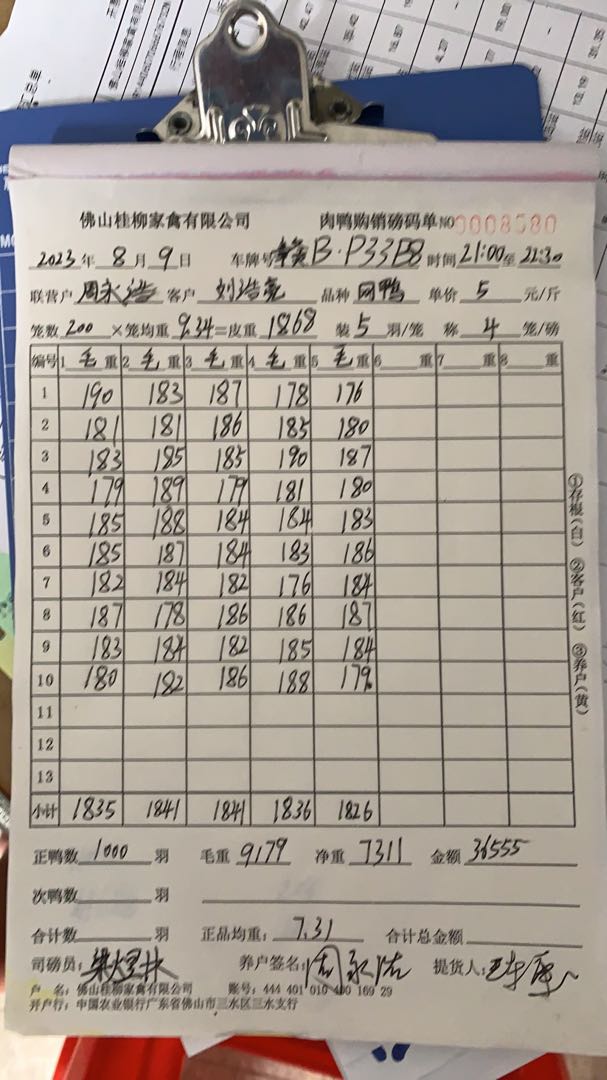 佛山桂柳家禽有限公司 肉鸭购销磅码单 NO 0008580
2023年 8月 9日 车牌号 赣B·P33B8 时间 21:00至 22:30
联营户 周永浩 客户 刘浩亮 品种 网鸭 单价 5 元/斤
笼数 200 ×笼均重 9.34=皮重 1868 装 5 羽/笼 称 4 笼/磅
编号 1 毛重 2 毛重 3 毛重 4 毛重 5 毛重 6 重 7 重 8 重
1 190 183 187 178 176
2 181 181 186 185 180
3 183 185 185 190 187
4 179 189 179 181 180
5 185 188 184 184 183
6 185 187 184 183 186
7 182 184 182 176 184
8 187 178 186 186 187
9 183 184 182 185 184
10 180 182 186 188 179
11
12
13
小计 1835 1841 1841 1836 1826
正鸭数 1000 羽 毛重 9179 净重 7311 金额 36555
次鸭数 羽
合计数 羽 正品均重: 7.31 合计总金额
司磅员: 养户签名: 提货人:
户 名: 佛山桂柳家禽有限公司 账号: 444 401 010 400 169 29
开户行: 中国农业银行广东省佛山市三水区三水支行
①存根(白) ②客户(红) ③养户(黄)